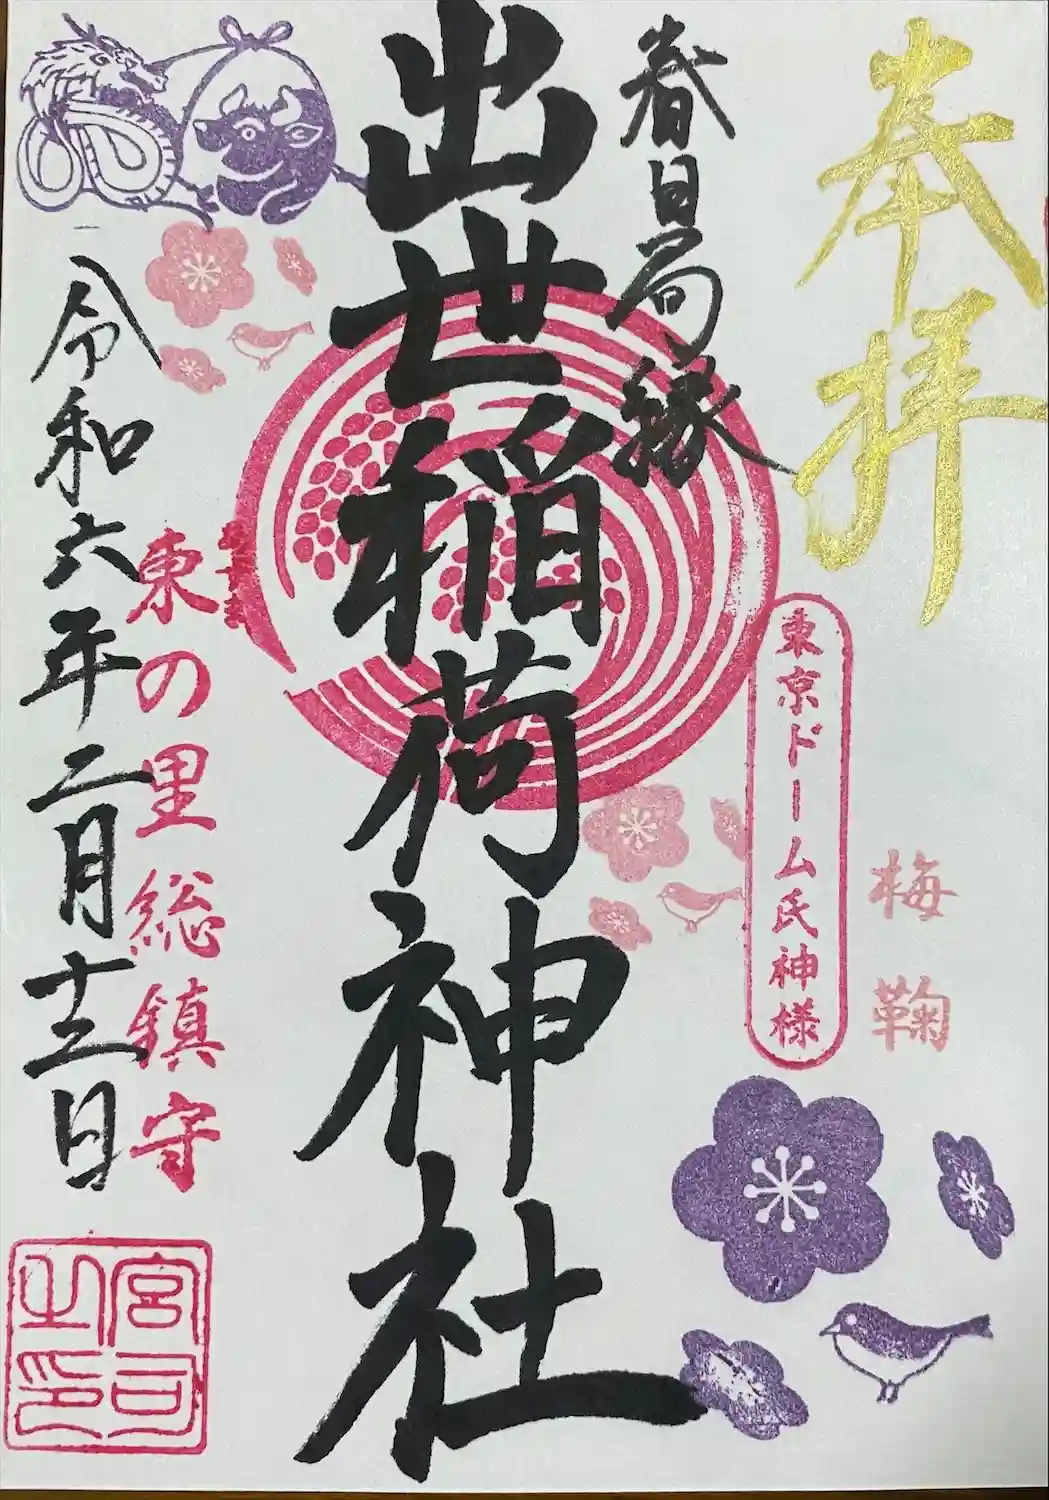 奉拝
梅鞠
東京ドーム氏神様
春日局縁
出世稲荷神社
東の里総鎮守
令和六年二月十二日
宮司之印